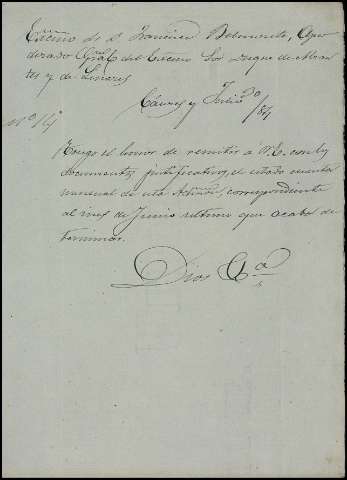 Excmo Sr. D. Francisco Belmonte, Apo
derado Gral del Excmo Sor Duque de Abran
tes y de Linares
Cáceres y Julio /84
Nº 14
Tengo el honor de remitir a V.E. con los
documentos justificativos, el estado cuenta
mensual de esta Admon, correspondiente
al mes de Junio ultimo que acaba de
terminar.
Dios Ga